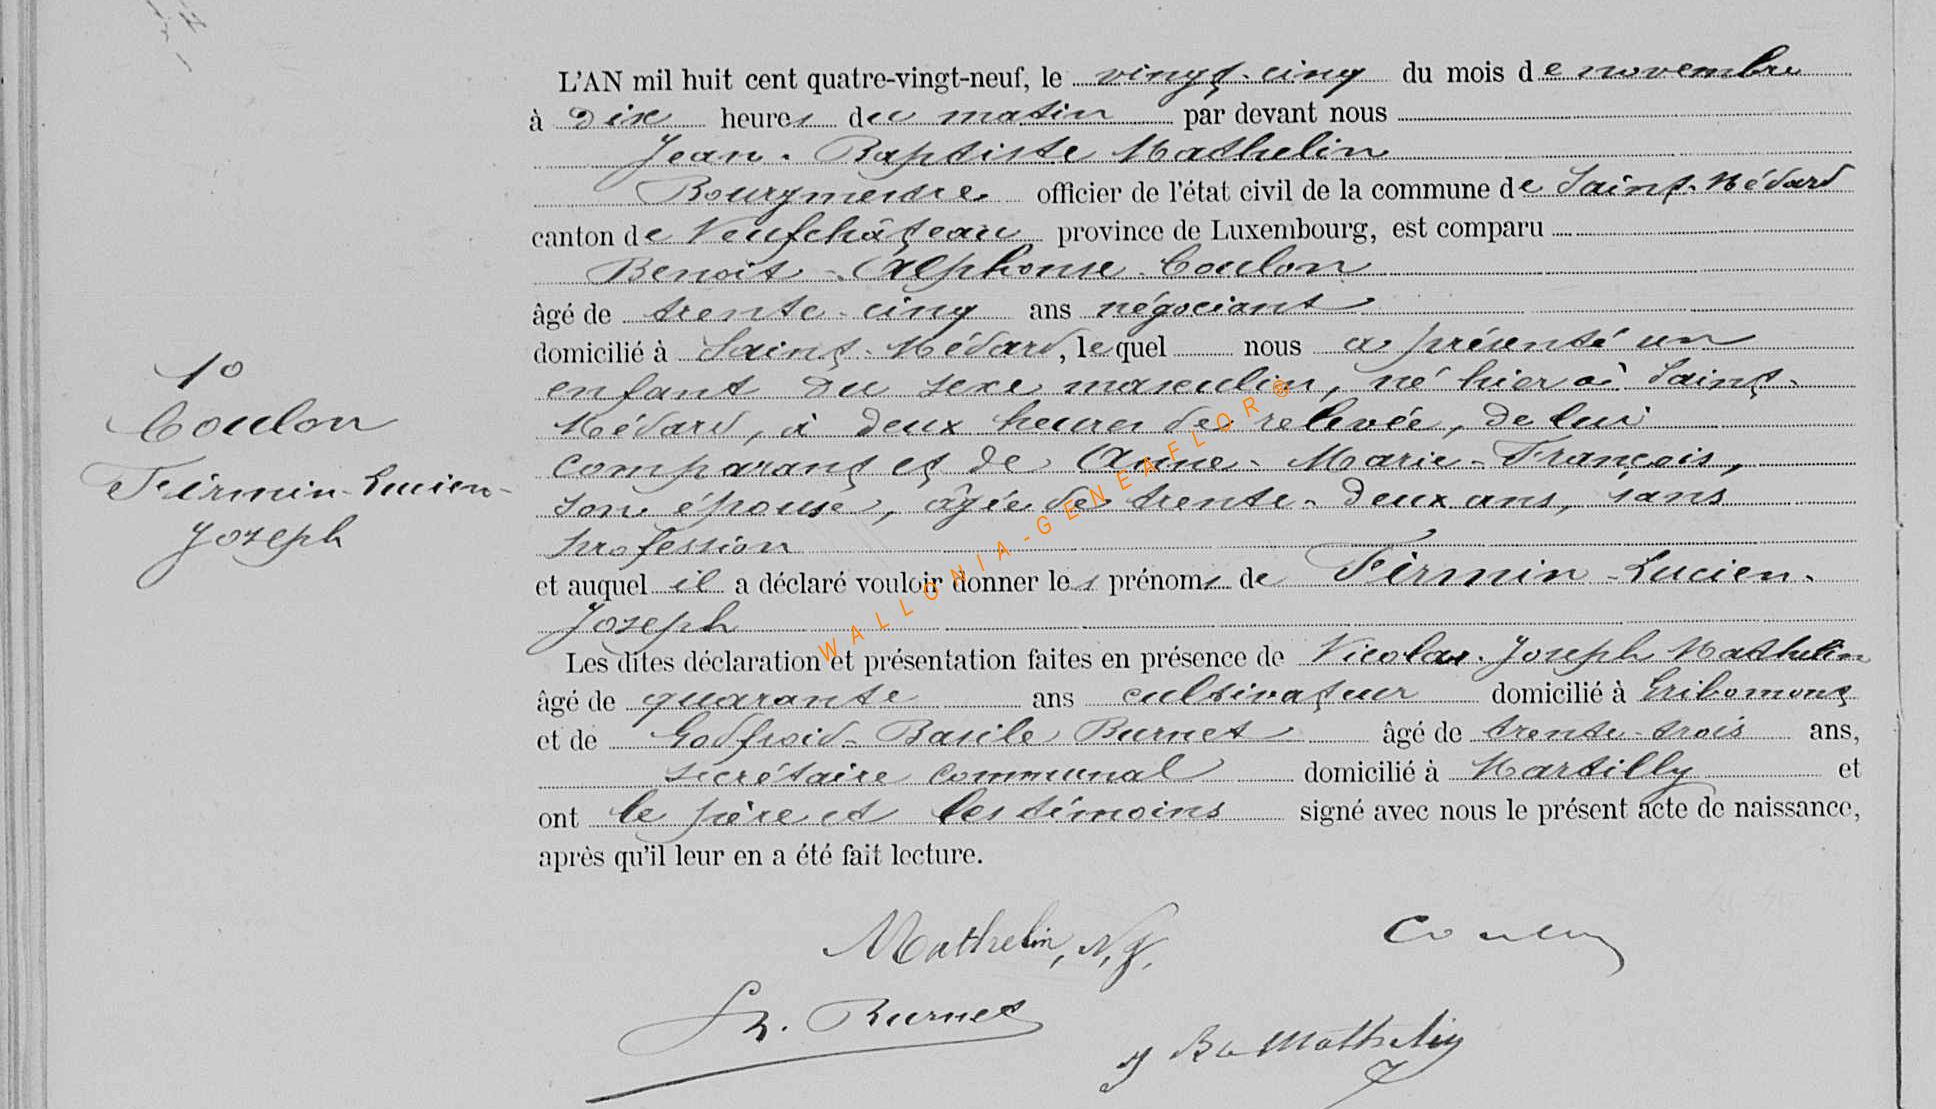 L'AN mil huit cent quatre-vingt-neuf, le vingt-cinq du mois de novembre
à dix heures du matin par devant nous
Jean-Baptiste Mathelin
Bourgmestre officier de l'état civil de la commune de Saint-Médard
canton de Neufchâteau province de Luxembourg, est comparu
Benoit-Alphonse Coulon
âgé de trente-cinq ans négociant
domicilié à Saint-Médard, lequel nous a présenté un
enfant du sexe masculin, né hier à Saint-
Médard, à deux heures de relevée, de lui
comparant et de Anne-Marie-François,
son épouse, âgée de trente-deux ans, sans
profession
et auquel il a déclaré vouloir donner les prénoms de Firmin-Lucien-
Joseph
Les dites déclaration et présentation faites en présence de Nicolas-Joseph Mathelin
âgé de quarante ans cultivateur domicilié à Gribomont
et de Godfroid-Basile Burnet âgé de trente-trois ans,
secrétaire communal domicilié à Martilly et
ont le père et les témoins signé avec nous le présent acte de naissance,
après qu'il leur en a été fait lecture.
1o
Coulon
Firmin-Lucien-
Joseph
WALLONIA-GENEAFLOR®
Mathelin, N, J.
Coulon
Burnet
J Bte Mathelin